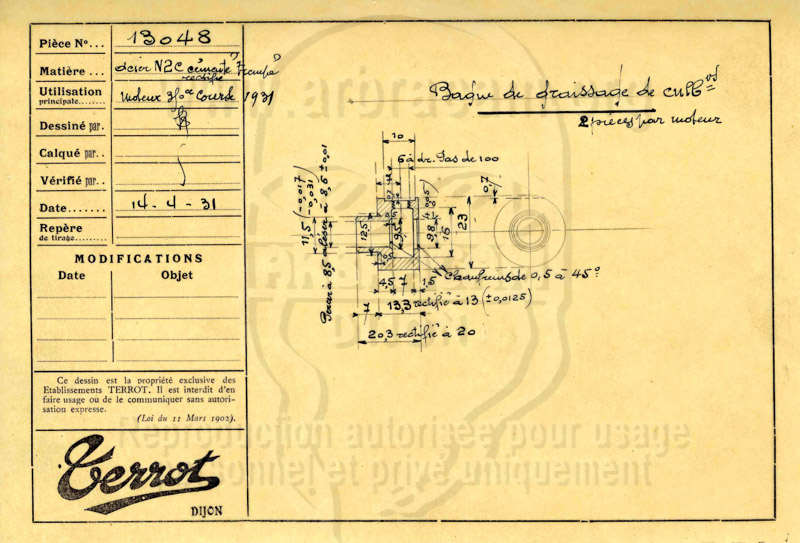 Pièce Nº... 13048
Matière ... acier N2C cémenté trempé
rectifié
Utilisation
principale........ Moteux 350cc Course 1931
Dessiné par.
Calqué par..
Vérifié par..
Date....... 14-4-31
Repère
de tirage........
MODIFICATIONS
Date Objet
Ce dessin est la propriété exclusive des
Etablissements TERROT. Il est interdit d'en
faire usage ou de le communiquer sans autori-
sation expresse.
(Loi du 11 Mars 1902).
Terrot
DIJON
Bague de graissage de culb
2 pièces par moteur
10
6 à dr. Pas de 100
0,7
11,5 (-0,017
-0,031)
Percer à 8,5 aléser à 8,6 ± 0,01
12,5
9,5
9,8
16
23
Chanfreins de 0,5 à 45°
4,5 7 1,5
7
13,3 rectifié à 13 (±0,0125)
20,3 rectifié à 20
Reproduction autorisée pour usage
personnel et privé uniquement